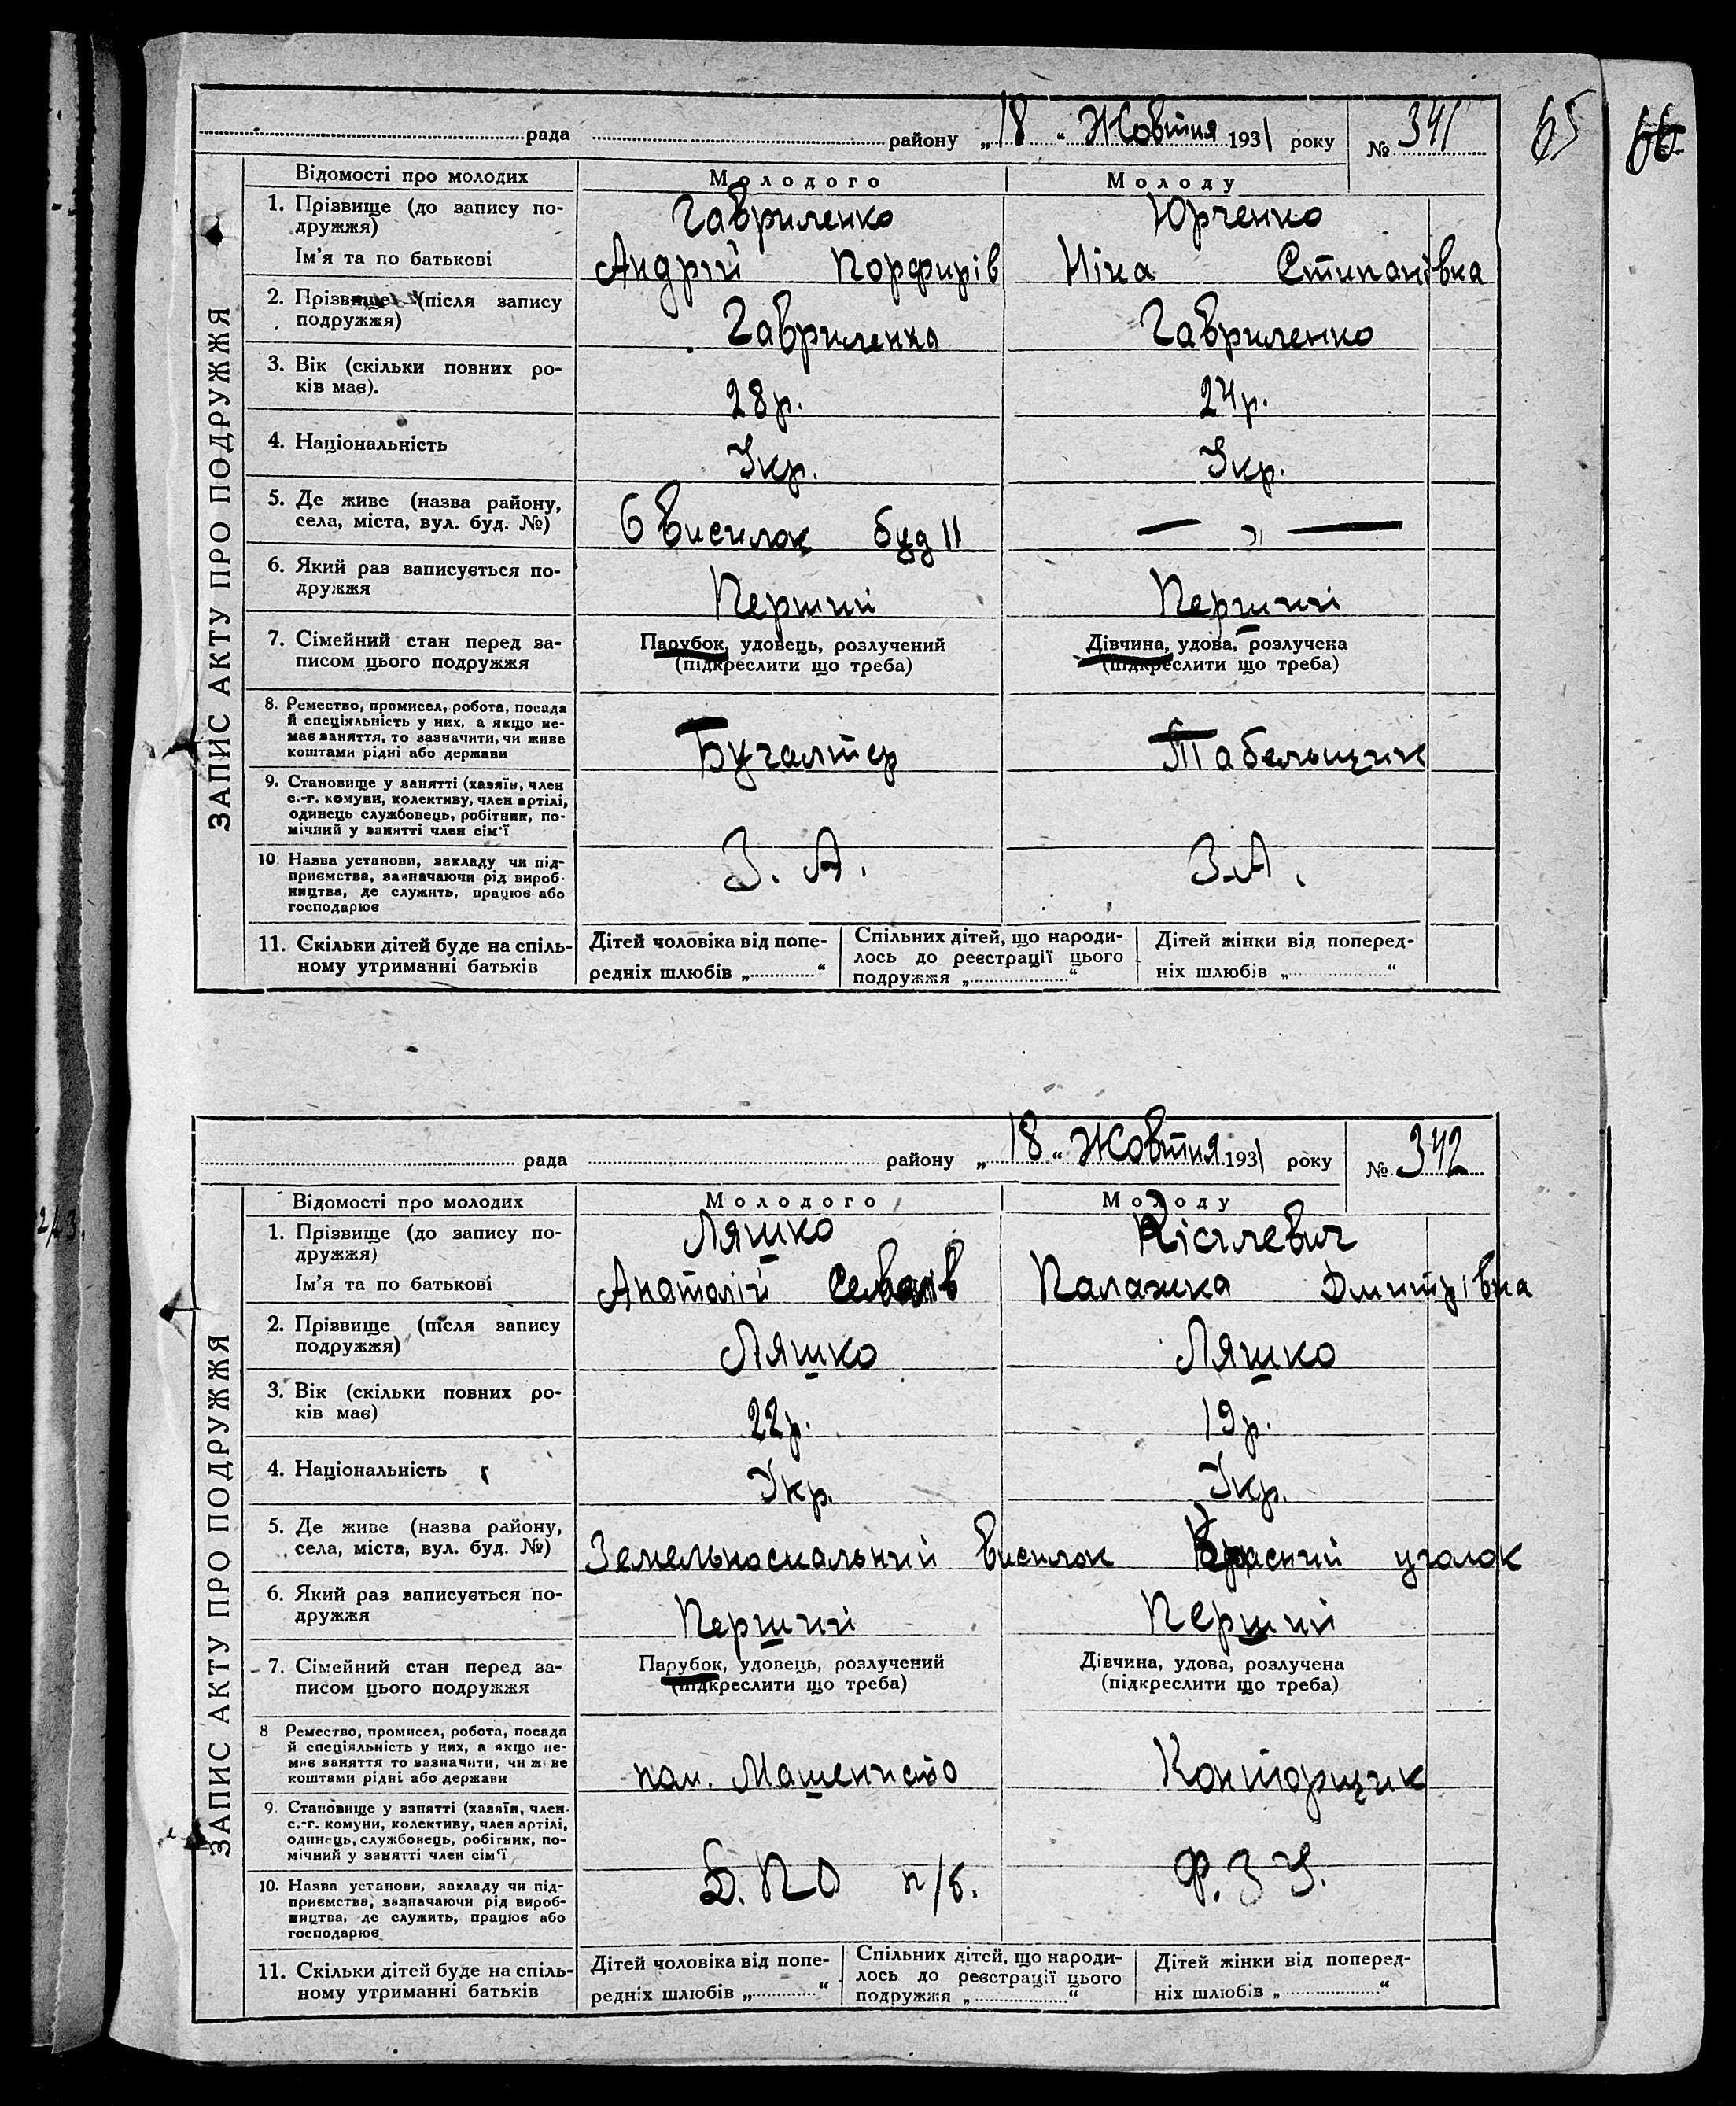 65 66
ЗАПИС АКТУ ПРО ПОДРУЖЖЯ
рада району „18“ Жовтня 1931 року № 341
Відомості про молодих Молодого Молоду
1. Прізвище (до запису по- Гавриленко Юрченко
дружжя)
Ім'я та по батькові Андрій Порфирів Ніна Стипанівна
2. Прізвище (після запису Гавриленко Гавриленко
подружжя)
3. Вік (скільки повних ро- 28р. 24р.
ків має).
4. Національність Укр. Укр.
5. Де живе (назва району, 6 висилок буд 11 — „ —
села, міста, вул. буд. №)
6. Який раз записується по- Перший Перший
дружжя
7. Сімейний стан перед за- Парубок, удовець, розлучений Дівчина, удова, розлучена
писом цього подружжя (підкреслити що треба) (підкреслити що треба)
8. Ремество, промисел, робота, посада
й спеціяльність у них, а якщо не-
має заняття, то зазначити, чи живе Бугалтер Табельщик
коштами рідні або держави
9. Становище у занятті (хазяїн, член
с.-г. комуни, колективу, член артілі,
одинець службовець, робітник, по-
мічний у занятті член сім'ї
10. Назва установи, закладу чи під- З. А. З.А.
приємства, зазначаючи рід вироб-
ництва, де служить, працює або
господарює
11. Скільки дітей буде на спіль- Дітей чоловіка від попе- Спільних дітей, що народи- Дітей жінки від поперед-
ному утриманні батьків редніх шлюбів „ “ лось до реєстрації цього ніх шлюбів „ “
подружжя „ “
ЗАПИС АКТУ ПРО ПОДРУЖЖЯ
рада району „18“ Жовтня 1931 року № 342
Відомості про молодих Молодого Молоду
1. Прізвище (до запису по- Ляшко Кісілевич
дружжя)
Ім'я та по батькові Анатолій Палажка Дмитрівна
2. Прізвище (після запису Ляшко Ляшко
подружжя)
3. Вік (скільки повних ро- 22р. 19р.
ків має)
4. Національність Укр. Укр.
5. Де живе (назва району, Земельноскальний висилок Красний уголок
села, міста, вул. буд. №)
6. Який раз записується по- Перший Перший
дружжя
7. Сімейний стан перед за- Парубок, удовець, розлучений Дівчина, удова, розлучена
писом цього подружжя (підкреслити що треба) (підкреслити що треба)
8 Ремество, промисел, робота, посада
й спеціяльність у них, а якщо не-
має заняття то зазначити, чи живе пом. Машениста Конторщик
коштами рідні або держави
9. Становище у занятті (хазяїн, член
с.-г. комуни, колективу, член артілі,
одинець, службовець, робітник, по-
мічний у занятті член сім'ї
10. Назва установи, закладу чи під- Д. ПО п/б. Ф. З У.
приємства, зазначаючи рід вироб-
ництва, де служить, працює або
господарює
11. Скільки дітей буде на спіль- Дітей чоловіка від попе- Спільних дітей, що народи- Дітей жінки від поперед-
ному утриманні батьків редніх шлюбів „ “ лось до реєстрації цього ніх шлюбів „ “
подружжя „ “